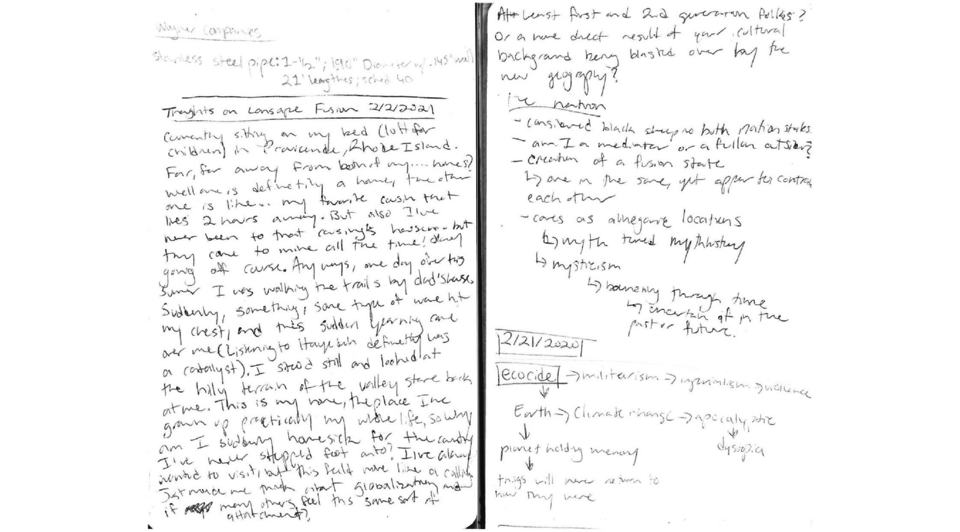 Wagner Companies
stainless steel pipe: 1-1/2"; 1.90" Diameter w/ .145" wall
21' lengthes; sched 40
Thoughts on Lansape Fusion 2/2/2021
Currently sitting on my bed (loft for
children) in Providence, Rhode Island.
Far, far away from both of my.... homes?
well one is definetily a home, the other
one is like.. my favorite cousin that
lives 2 hours away. But also I've
never been to that cousing's house... but
they come to mine all the time! Okay
going off course. Anyways, one day over this
sumer I was walking the trails by dad's house.
Suddenly, something, some type of wave hit
my chest, and this sudden yearning came
over me (Listening to definetly was
a catalyst). I stood still and looked at
the hilly terrain of the valley stare back
at me. This is my home, the place I've
grown up practically my whole life, so why
am I suddenly homesick for the country
I've never stepped foot onto? I've always
wanted to visit, but this feels more like a calling
Just made me think about globalization, and
if many others feel this same sort of
attatchment?
At least first and 2nd generation folks?
Or a more direct result of your cultural
background being blasted over by the
new geography?
The nation
- considered black sheep to both nation states
- am I a mediator or a full on outsider?
- creation of a fusion state
↳ one in the same, yet appear to contrast
each other
- caves as allegoric locations
↳ myth tuned mythhistory
↳ mysticism
↳ bounding through time
↳ uncertain of in the
past or future.
2/21/2020
ecocide → militarism → imperialism → violence
Earth → climate change → apocalyptic
planet holding memory
dystopia
things will never return to
how they were